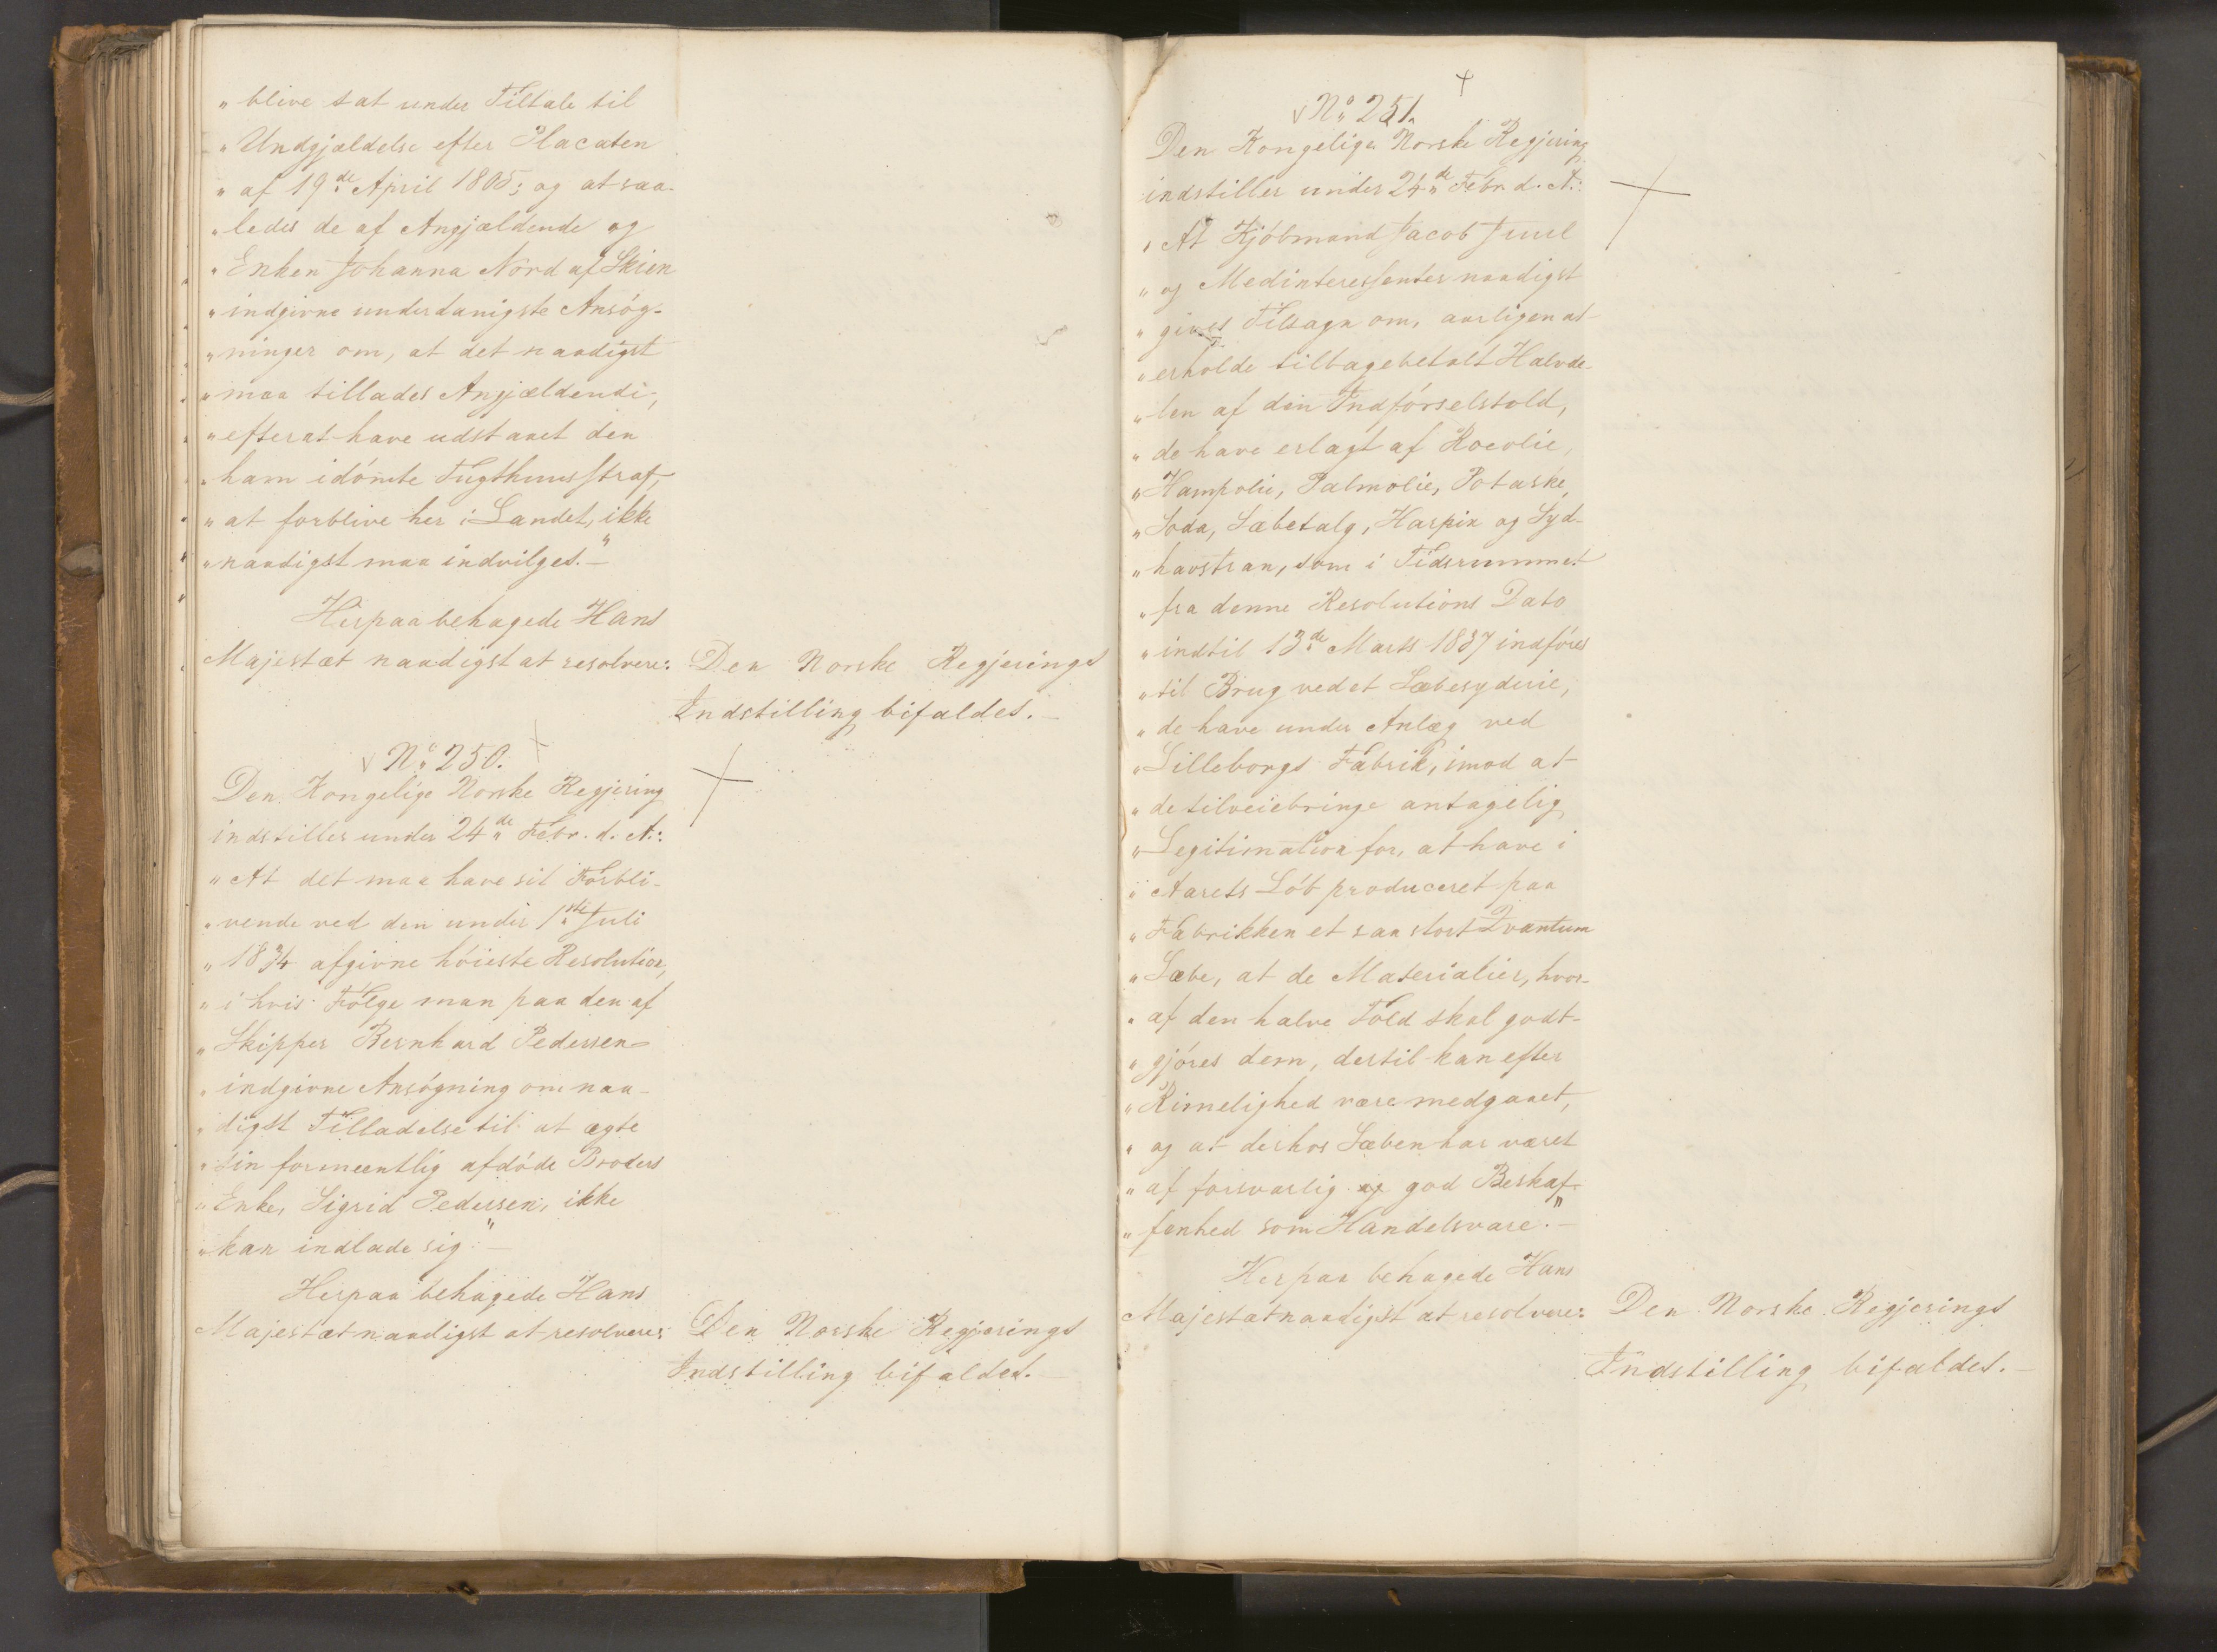 „ blive sat under Tiltale til
„ Undgjældelse efter Placaten
„ af 19de April 1805; og at saa-
„ ledes de af Angjældende og
„ Enken Johanna Nord af Skien
„ indgivne underdanigste Ansøg-
„ ninger om, at det naadigst
„ maa tillades Angjældende,
„ efter at have udstaaet den
„ ham idømte Tugthuusstraf,
„ at forblive her i Landet, ikke
„ naadigst maa indvilges." —
Herpaa behagede Hans
Majestæt naadigst at resolvere:
Den Norske Regjerings
Indstilling bifaldes. —
No 250.
Den Kongelige Norske Regjering
indstiller under 24de Febr. d. A.:
„ At det maa have sit Forbli-
„ vende ved den under 1ste Juli
„ 1834 afgivne høieste Resolution,
„ i hvis Følge man paa den af
„ Skipper Bernhard Pedersen
„ indgivne Ansøgning om naa-
„ digst Tilladelse til at ægte
„ sin formeentlig afdøde Broders
„ Enke, Sigrid Pedersen, ikke
„ kan indlade sig." —
Herpaa behagede Hans
Majestæt naadigst at resolvere:
Den Norske Regjerings
Indstilling bifaldes. —
No 251.
Den Kongelige Norske Regjering
indstiller under 24de Febr. d. A.:
„ At Kjøbmand Jacob Juul
„ og Medinteressenter naadigst
„ gives Tilsagn om, aarligen at
„ erholde tilbagebetalt Halvde-
„ len af den Indførselstold,
„ de have erlagt af Roeolie,
„ Hampolie, Palmolie, Potaske,
„ Soda, Sæbetalg, Harpix og Syd-
„ havstran, som i Tidsrummet
„ fra denne Resolutions Dato
„ indtil 13de Marts 1837 indføres
„ til Brug ved et Sæbesyderie,
„ de have under Anlæg ved
„ Lilleborgs Fabrik, imod at
„ de tilveiebringe antagelig
„ Legitimation for, at have i
„ Aarets Løb produceret paa
„ Fabrikken et saa stort Qvantum
„ Sæbe, at de Materialier, hvor-
„ af den halve Told skal godt-
„ gjøres dem, dertil kan efter
„ Rimelighed være medgaaet,
„ og at derhos Sæben har været
„ af forsvarlig og god Beskaf-
„ fenhed som Handelsvare." —
Herpaa behagede Hans
Majestæt naadigst at resolvere:
Den Norske Regjerings
Indstilling bifaldes. —